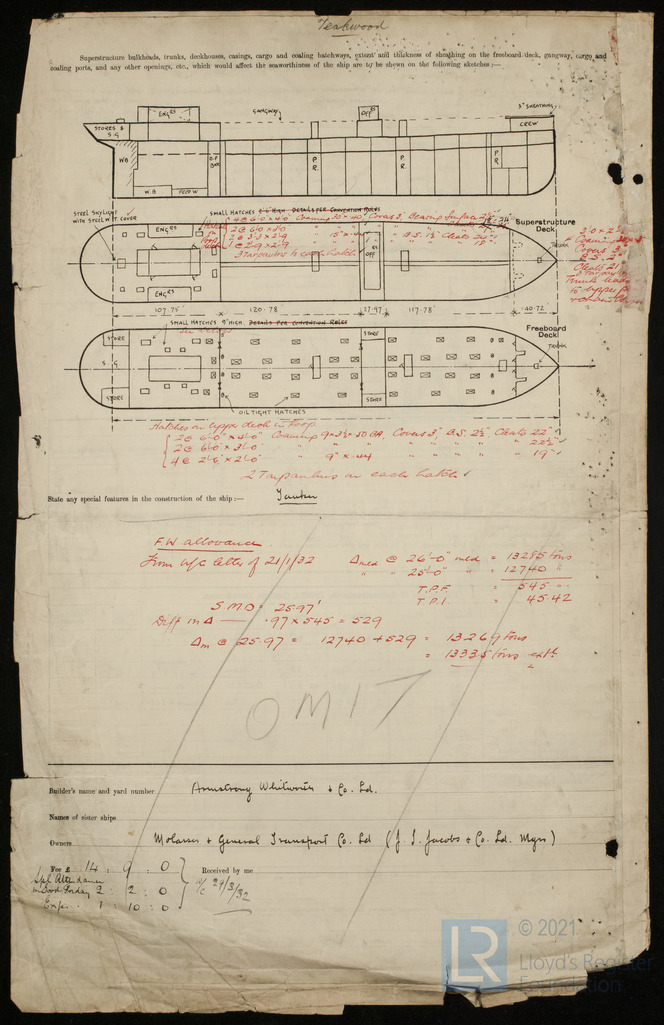 Teakwood
Superstructure bulkheads, trunks, deckhouses, casings, cargo and coaling hatchways, extent and thickness of sheathing on the freeboard deck, gangway, cargo and
coaling ports, and any other openings, etc., which would affect the seaworthiness of the ship are to be shewn on the following sketches:—
ENGRS
GANGWAY
OFFS
3" SHEATHING
STORES &
S.G
CREW
W.B
O.F
BKR
P.
R.
P.
R.
P.
R
W.B
FEED W
STEEL SKYLIGHT
WITH STEEL W.T. COVER
SMALL HATCHES DETAILS PER CONVENTION RULES
Superstructure
Deck
ENGRS
OFF
ENGRS
3 Tarpaulins to each hatch
107·75'
120·78
27·97
117·78
40·72
SMALL HATCHES 9" HIGH. DETAILS PER CONVENTION RULES
Freeboard
Deck
TRUNK
STORE
STORE
S.G
STORE
STORE
OILTIGHT HATCHES
Hatches on upper deck in Poop
2 @ 6'-0" x 4'-0" Coaming 9 x 3½ x ·50 BA, Covers 3", B.S. 2½" Cleats 22"
2 @ 6'-0" x 3'-0" " " " " " 22½"
4 @ 2'-6" x 2'-0" " 9" x ·44 " " " " 19"
2 Tarpaulins on each hatch
State any special features in the construction of the ship:— Tanker
F.W allowance
From letter of 21/1/32 Δ med @ 26'-0" med = 13285 tons
" " 25'-0" " = 12740 "
T.P.F. = 545
T.P.I. = 45·42
S.M.D = 25·97'
Diff in Δ — ·97 x 545 = 529
Δm @ 25·97 = 12740 + 529 = 13269 tons
= 13335 tons extl.
OMIT
Builder's name and yard number Armstrong Whitworth & Co. Ld.
Names of sister ships
Owners Molasses & General Transport Co. Ld (J. I. Jacobs & Co. Ld. Mgrs)
Fee £ 14 : 9 : 0 Received by me
Spl Attendance
on Good Friday 2 : 2 : 0 a/c 29/3/32
Exps. 1 : 10 : 0
LR
© 2021
Lloyd's Register
Foundation